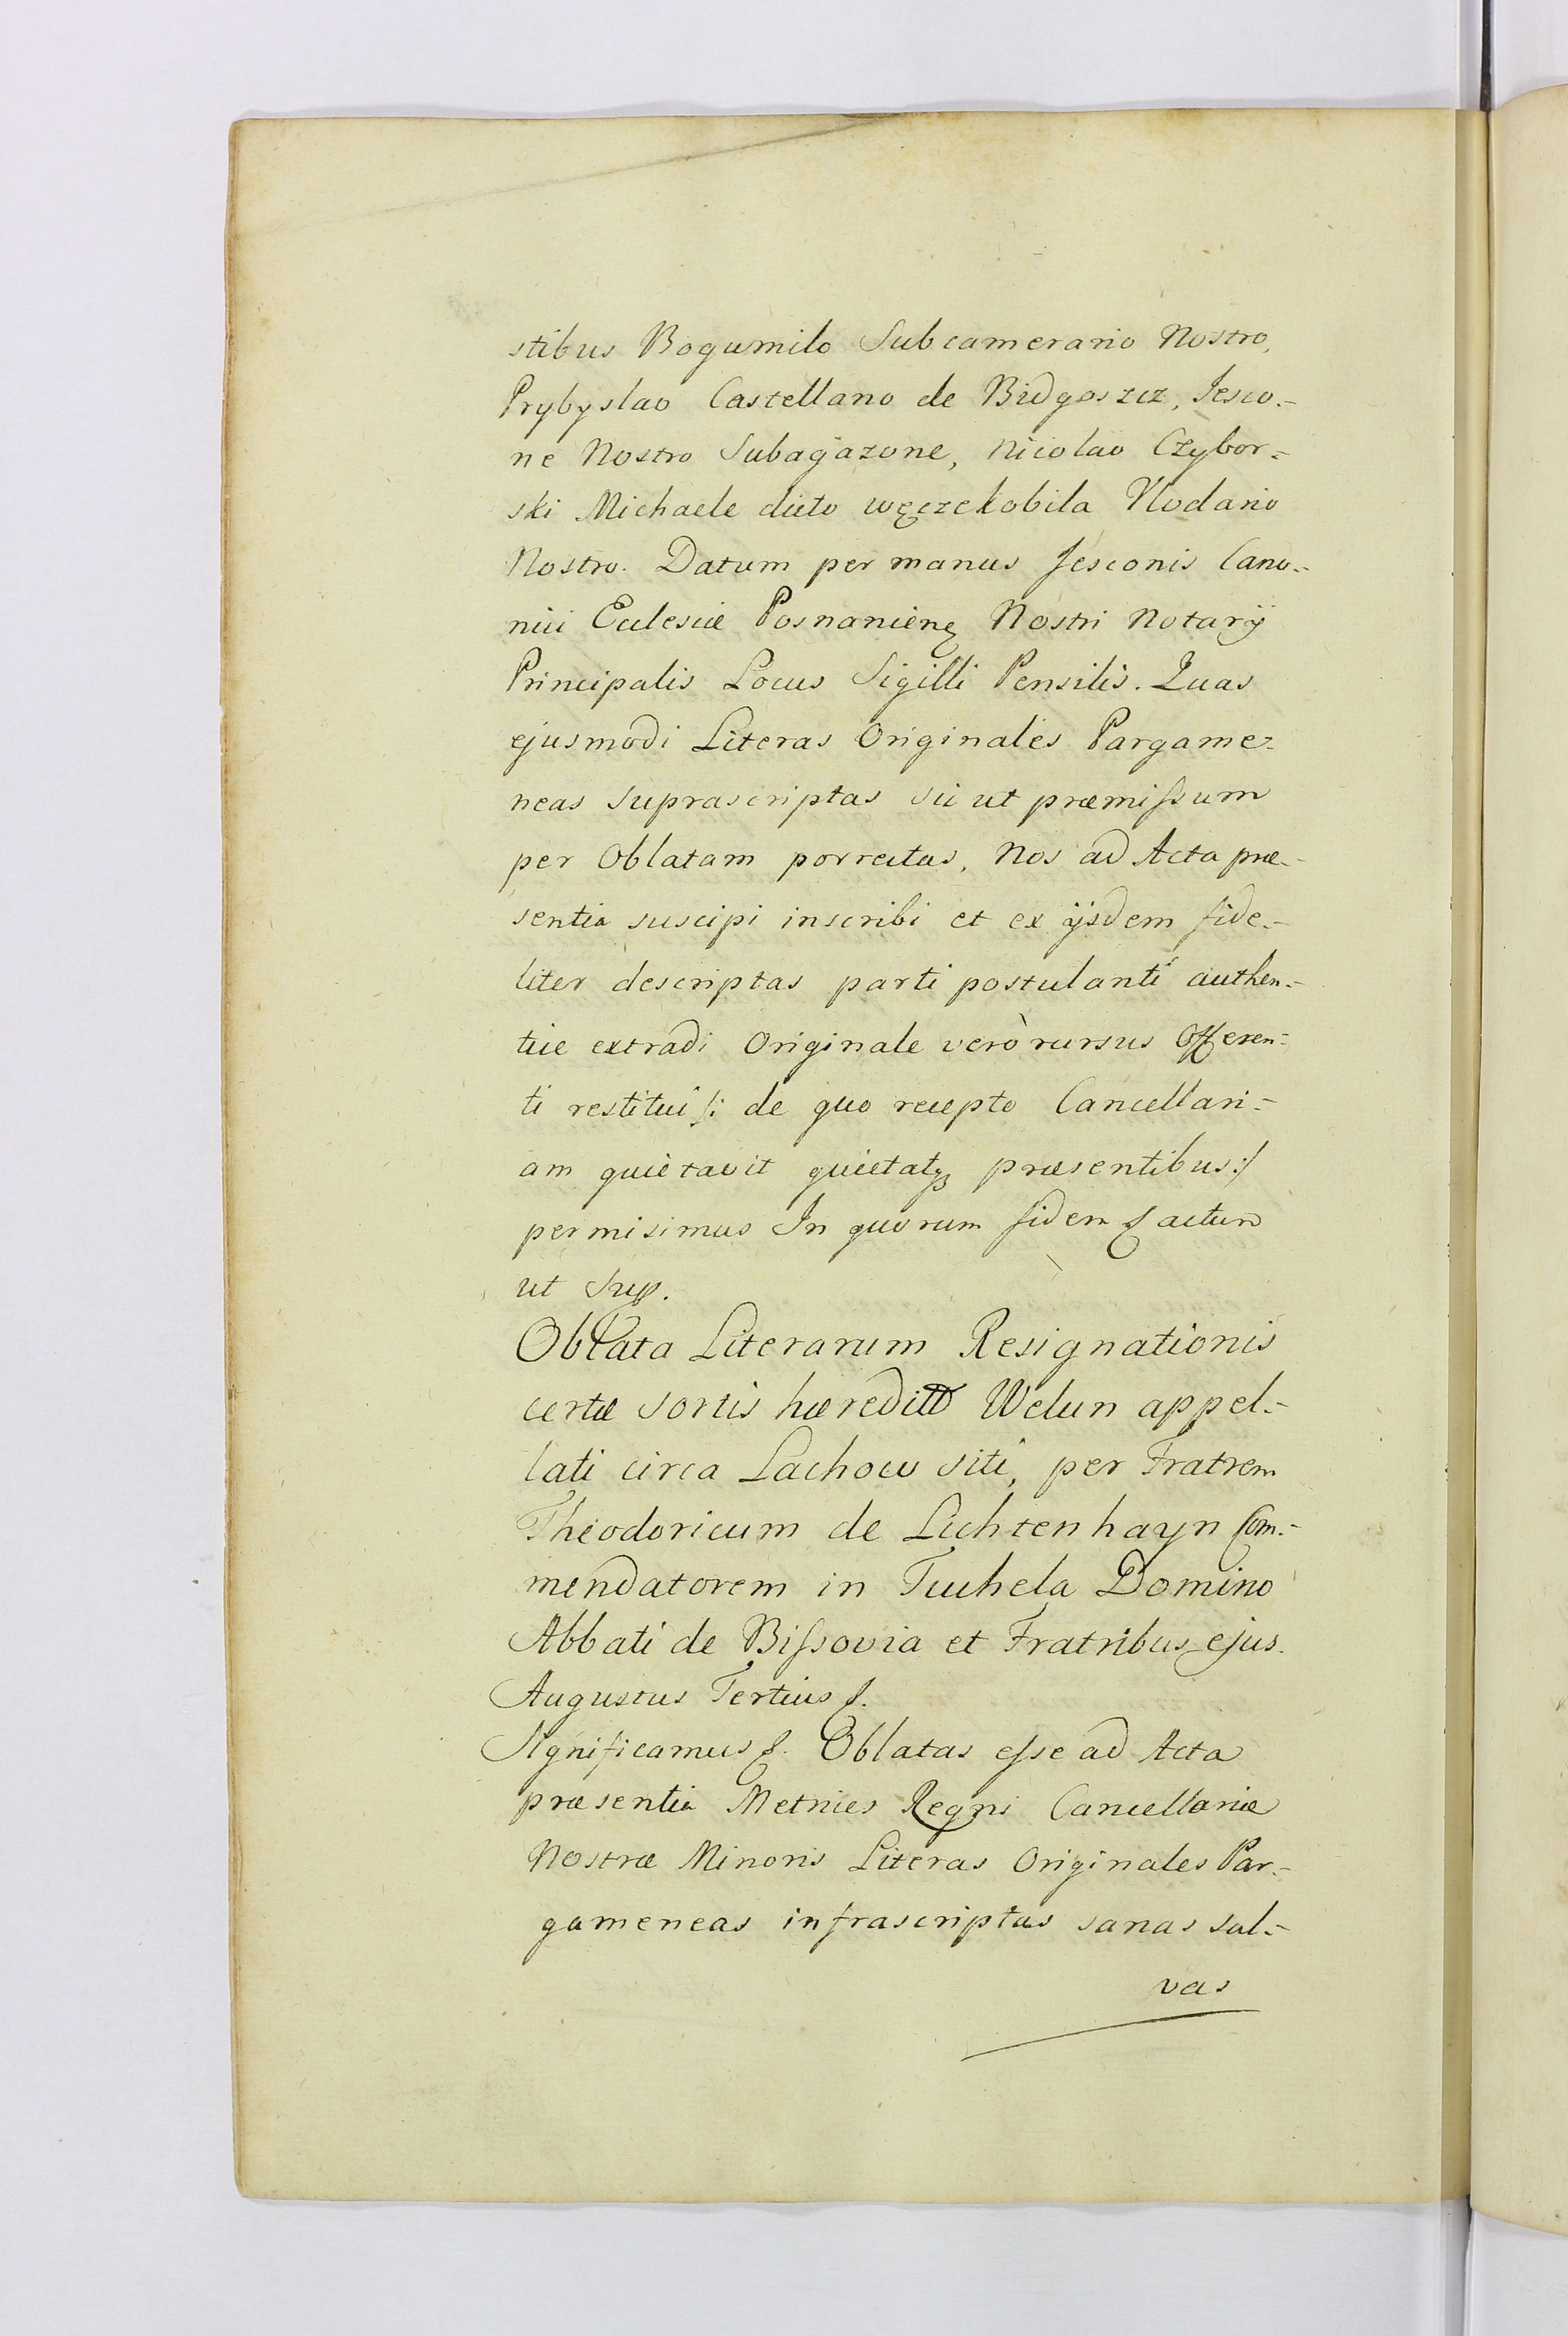 stibus Bogumilo Subcamerario Nostro,
Prybyslao Castellano de Bidgoszcz, Jesco-
ne Nostro Subagazone, Nicolao Czybor-
ski Michaele dicto węczekobila Vlodario
Nostro. Datum per manus Jesconis Cano-
nici Ecclesiæ Posnanienę Nostri Notarÿ
Principalis Locus Sigilli Pensilis. Quas
ejusmodi Literas Originales Pargame-
neas suprascriptas sic ut præmiſsum
per Oblatam porrectas, Nos ad Acta præ-
sentia suscipi inscribi et ex ijsdem fide-
liter descriptas parti postulanti authen-
tice extradi Originale verò rursus Offeren-
ti restitui /: de quo recepto Cancellari-
am quietavit quietatqꝫ præsentibus :/
permisimus In quorum fidem &. actum
ut Sup.
Oblata Literarum Resignationis
certæ sortis hæreditt Welun appel-
lati circa Lachow siti, per Fratrem
Theodoricum de Lichtenhayn Com-
mendatorem in Tuchela Domino
Abbati de Biſsovia et Fratribus ejus.
Augustus Tertius &.
Significamus &. Oblatas eſse ad Acta
præsentia Metrices Regni Cancellariæ
Nostræ Minoris Literas Originales Par-
gameneas infrascriptas sanas sal-
vas